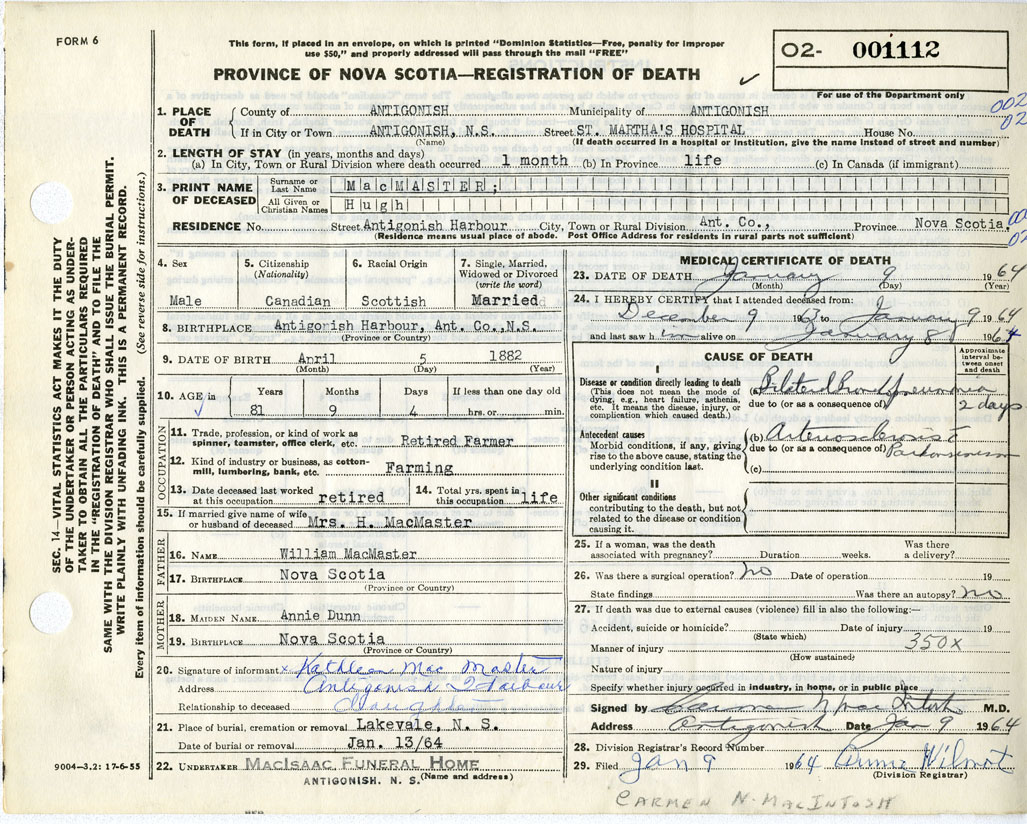 FORM 6
This form, if placed in an envelope, on which is printed "Dominion Statistics—Free, penalty for improper
use $50," and properly addressed will pass through the mail "FREE"
PROVINCE OF NOVA SCOTIA—REGISTRATION OF DEATH
O2- 001112
For use of the Department only
1. PLACE OF DEATH
County of ANTIGONISH Municipality of ANTIGONISH 002
If in City or Town ANTIGONISH, N.S. Street ST. MARTHA'S HOSPITAL House No. 02
(Name) (If death occurred in a hospital or institution, give the name instead of street and number)
2. LENGTH OF STAY (in years, months and days)
(a) In City, Town or Rural Division where death occurred 1 month (b) In Province life (c) In Canada (if immigrant)
3. PRINT NAME OF DECEASED
Surname or Last Name MacMASTER;
All Given or Christian Names Hugh
RESIDENCE No. Street Antigonish Harbour City, Town or Rural Division Ant. Co., Province Nova Scotia.
(Residence means usual place of abode. Post Office Address for residents in rural parts not sufficient)
SEC. 14—VITAL STATISTICS ACT MAKES IT THE DUTY
OF THE UNDERTAKER OR PERSON ACTING AS UNDER-
TAKER TO OBTAIN ALL THE PARTICULARS REQUIRED
IN THE "REGISTRATION OF DEATH" AND TO FILE THE
SAME WITH THE DIVISION REGISTRAR WHO SHALL ISSUE THE BURIAL PERMIT.
WRITE PLAINLY WITH UNFADING INK. THIS IS A PERMANENT RECORD.
Every item of information should be carefully supplied. (See reverse side for instructions.)
4. Sex
Male
5. Citizenship
(Nationality)
Canadian
6. Racial Origin
Scottish
7. Single, Married,
Widowed or Divorced
(write the word)
Married
8. BIRTHPLACE Antigonish Harbour, Ant. Co.,N.S.
(Province or Country)
9. DATE OF BIRTH April 5 1882
(Month) (Day) (Year)
10. AGE in Years Months Days If less than one day old
81 9 4 hrs. or min.
OCCUPATION
11. Trade, profession, or kind of work as
spinner, teamster, office clerk, etc. Retired Farmer
12. Kind of industry or business, as cotton-
mill, lumbering, bank, etc. Farming
13. Date deceased last worked
at this occupation retired
14. Total yrs. spent in
this occupation life
15. If married give name of wife
or husband of deceased Mrs. H. MacMaster
FATHER
16. NAME William MacMaster
17. BIRTHPLACE Nova Scotia
(Province or Country)
MOTHER
18. MAIDEN NAME Annie Dunn
19. BIRTHPLACE Nova Scotia
(Province or Country)
20. Signature of informant x Kathleen Mac Master
Address Antigonish Harbour
Relationship to deceased daughter
21. Place of burial, cremation or removal Lakevale, N. S.
Date of burial or removal Jan. 13/64
22. UNDERTAKER MACISAAC FUNERAL HOME
ANTIGONISH. N. S. (Name and address)
9004—3.2: 17-6-55
MEDICAL CERTIFICATE OF DEATH
23. DATE OF DEATH January 9 1964
(Month) (Day) (Year)
24. I HEREBY CERTIFY that I attended deceased from:
December 9 1963 to January 9 1964
and last saw him alive on January 8 1964
CAUSE OF DEATH
Approximate
interval be-
tween onset
and death
I
Disease or condition directly leading to death
(This does not mean the mode of
dying, e.g., heart failure, asthenia,
etc. It means the disease, injury, or
complication which caused death.)
Bilateral Bronchopneumonia
due to (or as a consequence of) 2 days
Antecedent causes
Morbid conditions, if any, giving
rise to the above cause, stating the
underlying condition last.
(b) Arteriosclerosis
due to (or as a consequence of) Parkinsonism
(c)
II
Other significant conditions
contributing to the death, but not
related to the disease or condition
causing it.
25. If a woman, was the death
associated with pregnancy? Duration weeks. Was there
a delivery?
26. Was there a surgical operation? no Date of operation 19
State findings Was there an autopsy? no
27. If death was due to external causes (violence) fill in also the following:—
Accident, suicide or homicide? Date of injury 19
(State which)
Manner of injury 350X
(How sustained)
Nature of injury
Specify whether injury occurred in industry, in home, or in public place
Signed by Carmen N MacIntosh M.D.
Address Antigonish Date Jan 9 1964
28. Division Registrar's Record Number
29. Filed Jan 9 1964 Wilmot
(Division Registrar)
CARMEN N. MACINTOSH